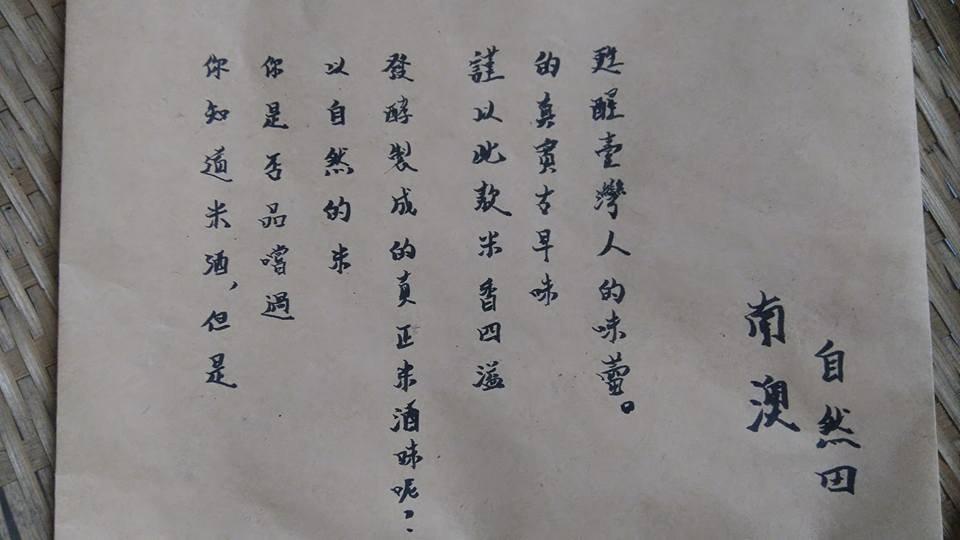 你知道米酒，但是
你是否品嚐過
以自然的米
發酵製成的真正米酒味呢？
謹以此款米香四溢
的真實古早味
甦醒臺灣人的味蕾。
南澳
自然田